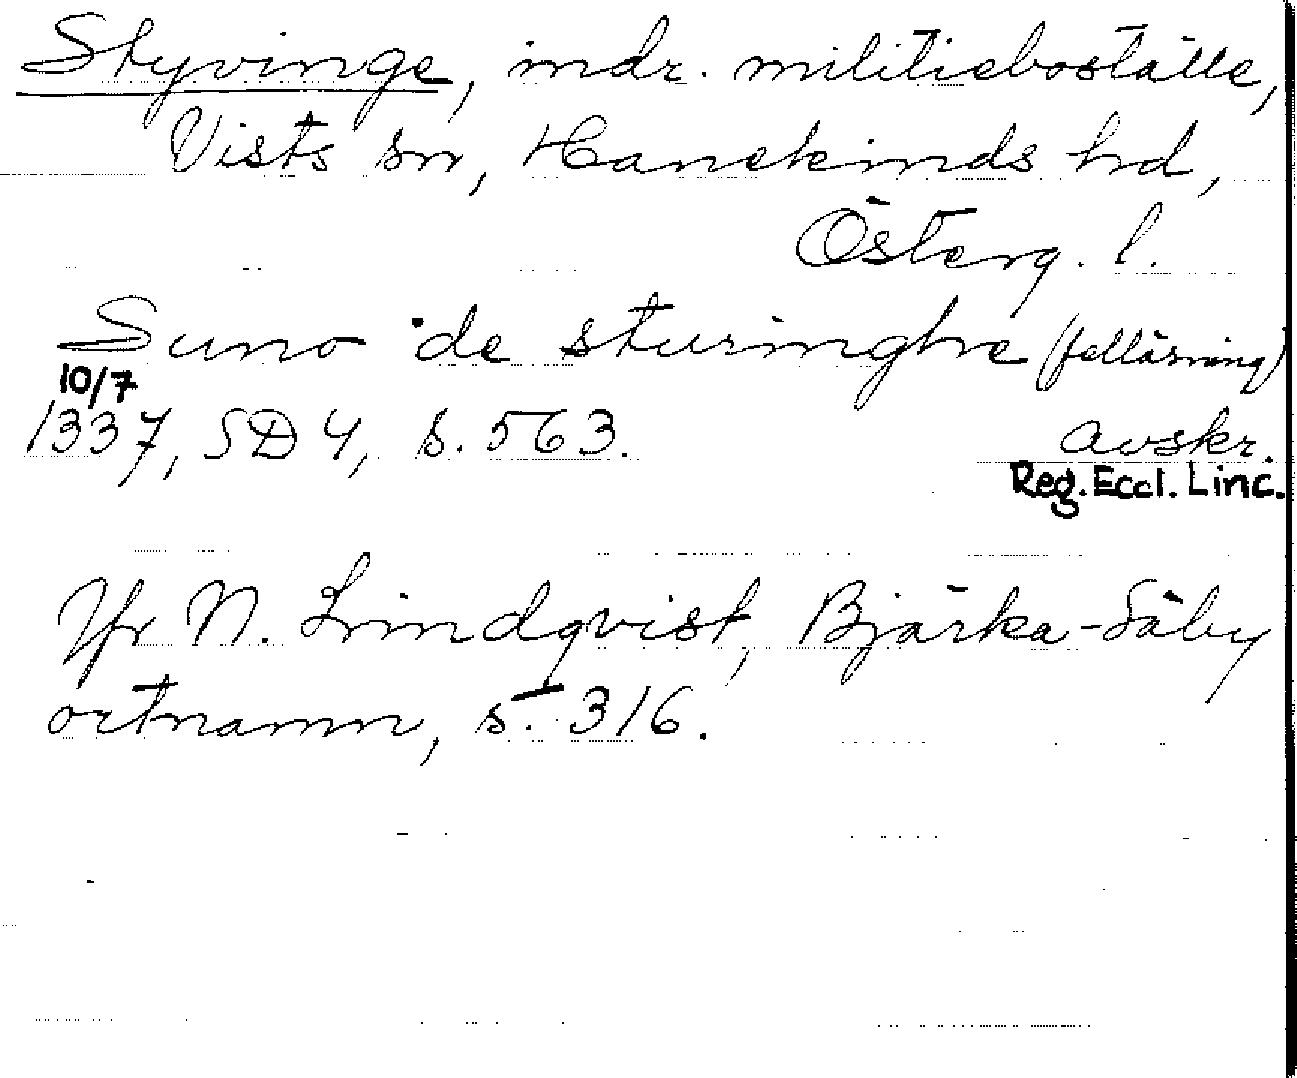 Styvinge, indr. militieboställe,
Vists sn, Hanekinds hd,
Österg. l.
Suno de sturinghe (felläsning)
10/7
1337, SD 4, s. 563. avskr.
Reg. Eccl. Linc.
Jfr N. Lindqvist, Bjärka-Säby
ortnamn, s. 316.